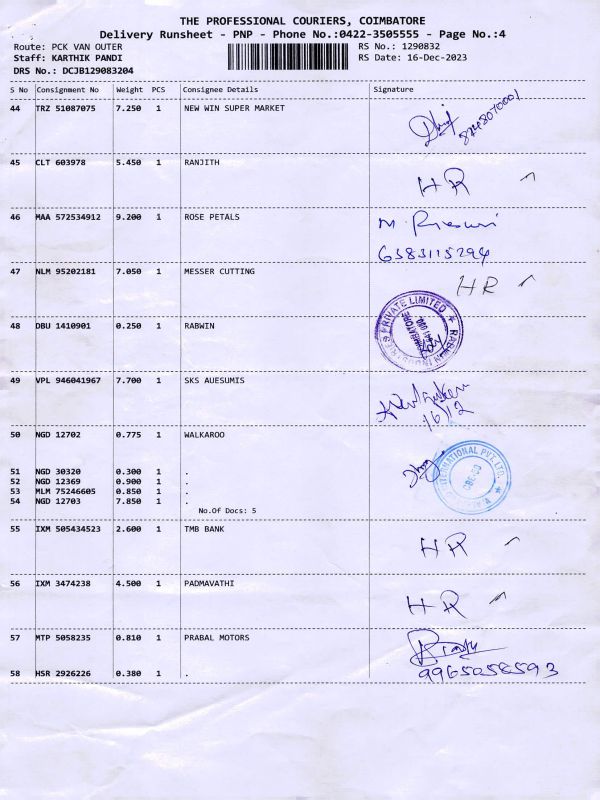 THE PROFESSIONAL COURIERS, COIMBATORE
Delivery Runsheet - PNP - Phone No.:0422-3505555 - Page No.:4
Route: PCK VAN OUTER RS No.: 1290832
Staff: KARTHIK PANDI RS Date: 16-Dec-2023
DRS No.: DCJB129083204
S No Consignment No Weight PCS Consignee Details Signature
44 TRZ 51087075 7.250 1 NEW WIN SUPER MARKET
45 CLT 603978 5.450 1 RANJITH
HR
46 MAA 572534912 9.200 1 ROSE PETALS
6383115294
47 NLM 95202181 7.050 1 MESSER CUTTING
HR
PRIVATE LIMITED
48 DBU 1410901 0.250 1 RABWIN
49 VPL 946041967 7.700 1 SKS AUESUMIS
16/12
50 NGD 12702 0.775 1 WALKAROO
51 NGD 30320 0.300 1 .
52 NGD 12369 0.900 1 .
53 MLM 75246605 0.850 1 .
54 NGD 12703 7.850 1 .
No.Of Docs: 5
55 IXM 505434523 2.600 1 TMB BANK
HR
56 IXM 3474238 4.500 1 PADMAVATHI
HR
57 MTP 5058235 0.810 1 PRABAL MOTORS
9965058593
58 HSR 2926226 0.380 1 .